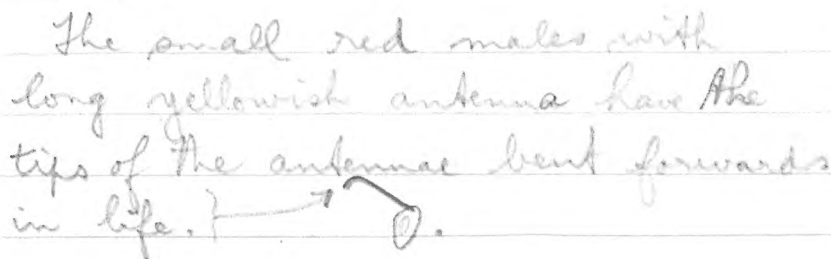 The small red males with
long yellowish antenna have the
tips of the antennae bent forwards
in life.